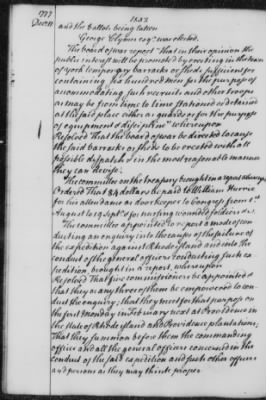 1777
Dec 11
1032
and the ballots being taken
George Clymer esqr. was elected.
The board of war report "that in their opinion the
public interest will be promoted by erecting in the town
of york temporary barracks or sheds sufficient for
containing six hundred men for the purpose of
accommodating such recruits and other troops
as may from time to time stationed or detained
at the said place either as guards or for the purpose
of equipment & discipline" whereupon
Resolved That the board of war be directed to cause
the said barracks or sheds to be erected with all
possible dispatch & in the most reasonable manner
they can devise.
The committee on the treasury brought in a report whereupon
Ordered That 84 dollars be paid to William Hurrie
for his attendance as door keeper to Congress from 1st
August to 19 Septr. & for nursing wounded soldiers &c.
The committee appointed to report a mode of con
ducting an enquiry into the causes of the failure of
the expedition against Rhode island and into the
conduct of the general officers conducting such ex
pedition brought in a report, whereupon
Resolved That five commissioners be appointed &
that they or any three of them be empowered to con
duct the enquiry; that they meet for that purpose on
the first Monday in February next at Providence in
the State of Rhode island and Providence plantations;
That they summon before them the commanding
officer and all the general officers concerned in the
conduct of the said expedition and such other officers
and persons as they may think proper